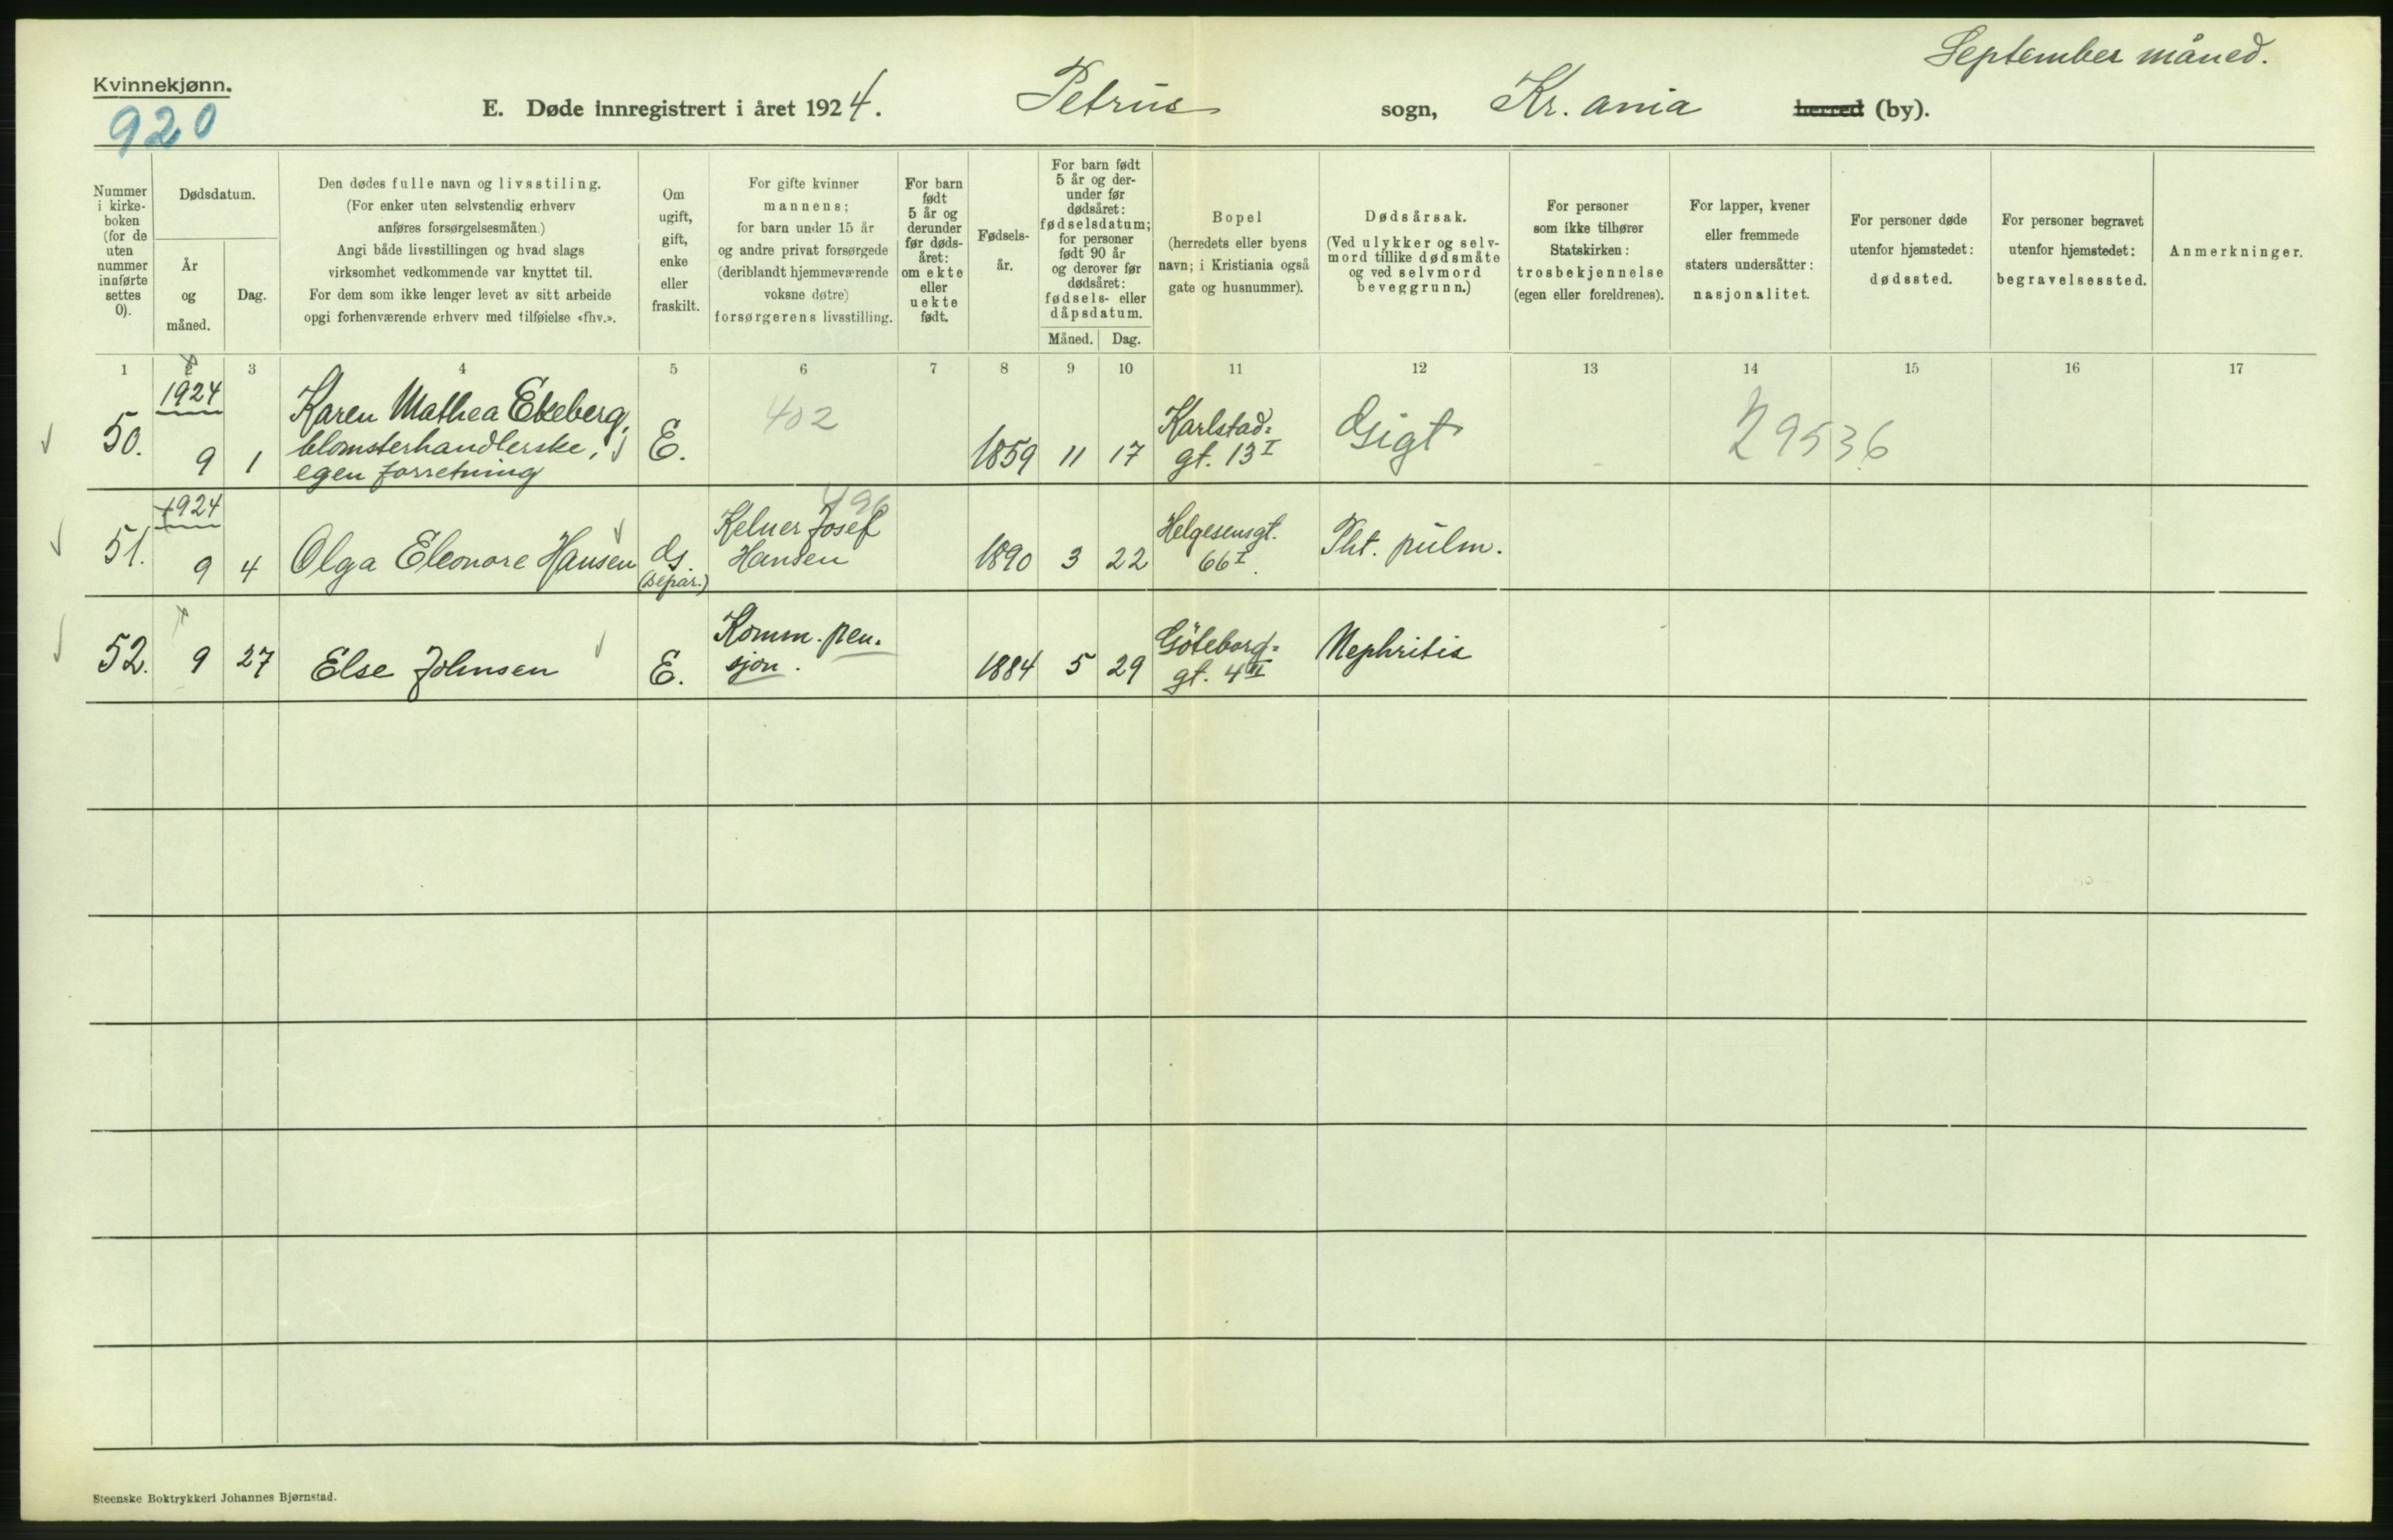 September måned.
Kvinnekjønn.
920
E. Døde innregistrert i året 1924. Petrus sogn, Kr.ania herred (by).
Nummer
i kirke-
boken
(for de
uten
nummer
innførte
settes
0).
Dødsdatum.
År
og
måned.
Dag.
Den dødes fulle navn og livsstiling.
(For enker uten selvstendig erhverv
anføres forsørgelsesmåten.)
Angi både livsstillingen og hvad slags
virksomhet vedkommende var knyttet til.
For dem som ikke lenger levet av sitt arbeide
opgi forhenværende erhverv med tilføielse «fhv.».
Om
ugift,
gift,
enke
eller
fraskilt.
For gifte kvinner
mannens;
for barn under 15 år
og andre privat forsørgede
(deriblandt hjemmeværende
voksne døtre)
forsørgerens livsstilling.
For barn
født
5 år og
derunder
før døds-
året:
om ekte
eller
uekte
født.
Fødsels-
år.
For barn født
5 år og der-
under før
dødsåret:
fødselsdatum;
for personer
født 90 år
og derover før
dødsåret:
fødsels- eller
dåpsdatum.
Måned. Dag.
Bopel
(herredets eller byens
navn; i Kristiania også
gate og husnummer).
Dødsårsak.
(Ved ulykker og selv-
mord tillike dødsmåte
og ved selvmord
beveggrunn.)
For personer
som ikke tilhører
Statskirken:
trosbekjennelse
(egen eller foreldrenes).
For lapper, kvener
eller fremmede
staters undersåtter:
nasjonalitet.
For personer døde
utenfor hjemstedet:
dødssted.
For personer begravet
utenfor hjemstedet:
begravelsessted.
Anmerkninger.
1 2 3 4 5 6 7 8 9 10 11 12 13 14 15 16 17
50.
1924
9 1
Karen Mathea Ekeberg,
blomsterhandlerske,
egen forretning
E.
402
1859 11 17
Karlstad=
gt. 13 I
Gigt
29536
51.
1924
9 4
Olga Eleonore Hansen
ds.
(separ.)
496
Kelner Josef
Hansen
1890 3 22
Helgesensgt.
66 I.
Pht. pulm.
52. 9 27
Else Johnsen
E.
Komm. pen.
sjon.
1884 5 29
Göteborg=
gt. 4 III
Nephritis
Steenske Boktrykkeri Johannes Bjørnstad.